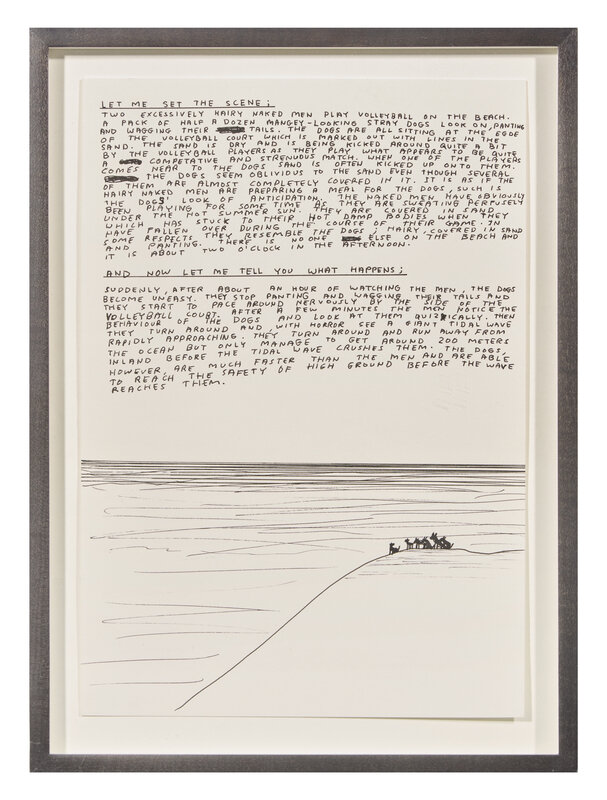 LET ME SET THE SCENE;
TWO EXCESSIVELY HAIRY NAKED MEN PLAY VOLLEYBALL ON THE BEACH.
A PACK OF HALF A DOZEN MANGEY-LOOKING STRAY DOGS LOOK ON, PANTING
AND WAGGING THEIR TAILS. THE DOGS ARE ALL SITTING AT THE EDGE
OF THE VOLLEYBALL COURT WHICH IS MARKED OUT WITH LINES IN THE
SAND. THE SAND IS DRY AND IS BEING KICKED AROUND QUITE A BIT
BY THE VOLLEYBALL PLAYERS AS THEY PLAY WHAT APPEARS TO BE QUITE
A COMPETATIVE AND STRENUOUS MATCH. WHEN ONE OF THE PLAYERS
COMES NEAR TO THE DOGS SAND IS OFTEN KICKED UP ONTO THEM.
THE DOGS SEEM OBLIVIOUS TO THE SAND EVEN THOUGH SEVERAL
OF THEM ARE ALMOST COMPLETELY COVERED IN IT. IT IS AS IF THE
HAIRY NAKED MEN ARE PREPARING A MEAL FOR THE DOGS, SUCH IS
THE DOGS' LOOK OF ANTICIPATION. THE NAKED MEN HAVE OBVIOUSLY
BEEN PLAYING FOR SOME TIME AS THEY ARE SWEATING PERFUSELY
UNDER THE HOT SUMMER SUN. THEY ARE COVERED IN SAND
WHICH HAS STUCK TO THEIR HOT, DAMP BODIES WHEN THEY
HAVE FALLEN OVER DURING THE COURSE OF THEIR GAME. IN
SOME RESPECTS THEY RESEMBLE THE DOGS; HAIRY, COVERED IN SAND
AND PANTING. THERE IS NO ONE ELSE ON THE BEACH AND
IT IS ABOUT TWO O'CLOCK IN THE AFTERNOON.
AND NOW LET ME TELL YOU WHAT HAPPENS;
SUDDENLY, AFTER ABOUT AN HOUR OF WATCHING THE MEN, THE DOGS
BECOME UNEASY. THEY STOP PANTING AND WAGGING THEIR TAILS AND
THEY START TO PACE AROUND NERVOUSLY BY THE SIDE OF THE
VOLLEYBALL COURT. AFTER A FEW MINUTES THE MEN NOTICE THE
BEHAVIOUR OF THE DOGS AND LOOK AT THEM QUIZICALLY. THEN
THEY TURN AROUND AND, WITH HORROR SEE A GIANT TIDAL WAVE
RAPIDLY APPROACHING. THEY TURN AROUND AND RUN AWAY FROM
THE OCEAN BUT ONLY MANAGE TO GET AROUND 200 METERS
INLAND BEFORE THE TIDAL WAVE CRUSHES THEM. THE DOGS,
HOWEVER, ARE MUCH FASTER THAN THE MEN AND ARE ABLE
TO REACH THE SAFETY OF HIGH GROUND BEFORE THE WAVE
REACHES THEM.